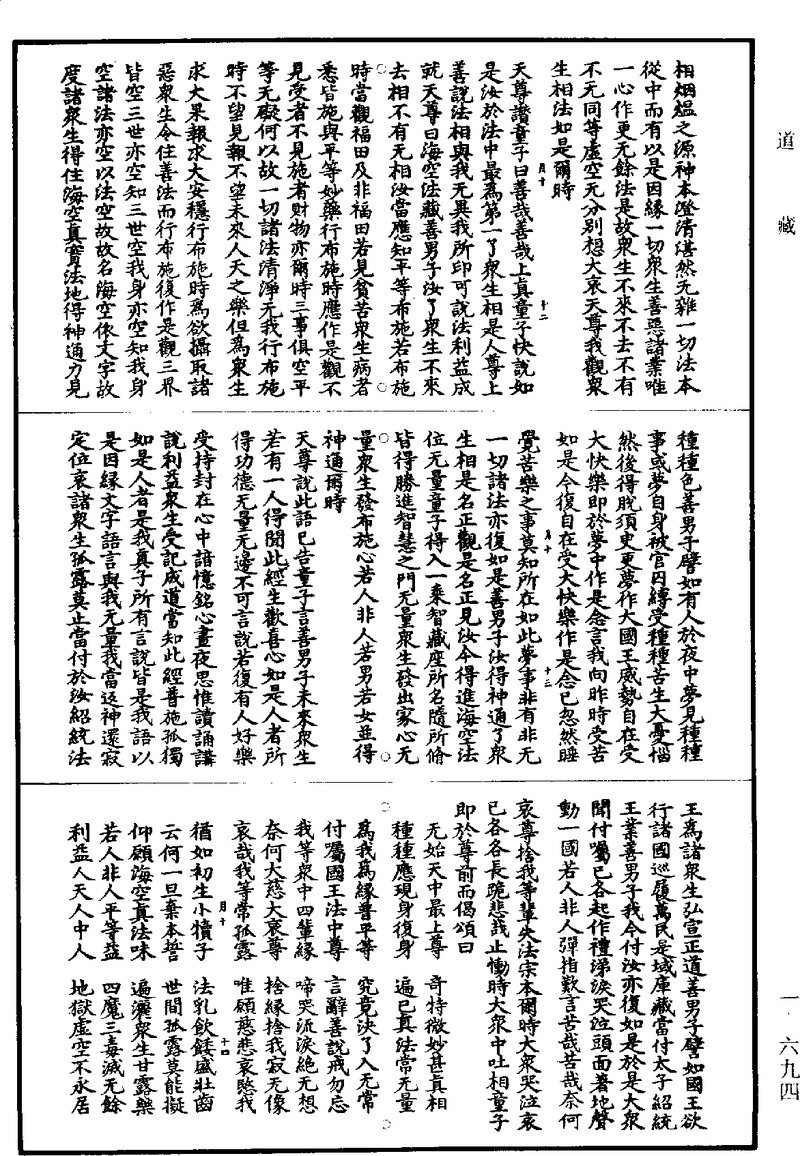 道藏
相烟煴之源神本澄清湛然无雜一切法本
從中而有以是因緣一切衆生善惡諸業唯
一心作更无餘法是故衆生不來不去不有
不无同等虛空无分別想大哀天尊我觀衆
生相法如是爾時
天尊讚童子曰善哉善哉上真童子快說如
是汝於法中最為第一了衆生相是人尊上
善說法相與我无異我所印可說法利益成
就天尊曰海空法藏善男子汝了衆生不來
去相不有无相汝當應知平等布施若布施
時當觀福田及非福田若見貧苦衆生病者
悉皆施與平等妙藥行布施時應作是觀不
見受者不見施者財物亦爾時三事俱空平
等无礙何以故一切諸法清淨无我行布施
時不望見報不望未來人天之樂但為衆生
求大果報求大安穩行布施時為欲攝取諸
惡衆生令住善法而行布施復作是觀三界
皆空三世亦空知三世空我身亦空知我身
空諸法亦空以法空故故名海空依文字故
度諸衆生得住海空真實法地得神通力見
種種色善男子譬如有人於夜中夢見種種
事或夢自身被官囚縛受種種苦生大憂惱
然後得脫須更更夢作大國王威勢自在受
大快樂即於夢中作是念言我向昨時受苦
如是今復自在受大快樂作是念已忽然睡
覺苦樂之事莫知所在如此夢事非有非无
一切諸法亦復如是善男子汝得神通了衆
生相是名正觀是名正見汝今得進海空法
位无量童子得入一乘智藏座所名隨所脩
皆得勝進智慧之門无量衆生發出家心无
量衆生發布施心若人非人若男若女並得
神通爾時
天尊說此語已告童子言善男子未來衆生
若有一人得聞此經生歡喜心如是人者所
得功德无量无邊不可言說若復有人好樂
受持封在心中諳憶銘心晝夜思惟讀誦講
說利益衆生受記成道當知此經普施孤獨
如是人者是我真子所有言說皆是我語以
是因緣文字語言與我无量我當返神還寂
定位哀諸衆生孤露莫止當付於汝紹統法
王為諸衆生弘宣正道善男子譬如國王欲
行諸國巡履萬民是域庫藏當付太子紹統
王業善男子我今付汝亦復如是於是大衆
聞付囑已各起作禮涕淚哭泣頭面著地聲
動一國若人非人彈指歎言苦哉苦哉奈何
哀尊捨我等輩失法宗本爾時大衆哭泣哀
已各各長跪悲哉止慟時大衆中吐相童子
即於尊前而偈頌曰
无始天中最上尊　奇特微妙甚真相
種種應現身復身　遍已真法常无量
為我為緣普平等　究竟決了入无常
付囑國王法中尊　言辭善說戒勿忘
我等衆中四輩緣　啼哭流淚絕无想
奈何大慈大哀尊　捨緣捨我寂无像
哀哉我等常孤露　唯願慈悲哀愍我
猶如初生小犢子　法乳飲餧盛壯齒
云何一旦棄本誓　世間孤露莫能擬
仰願海空真法味　遍灑衆生甘露樂
若人非人平等益　四魔三毒滅无餘
利益人天人中人　地獄虛空不永居
月十
十二
月十
十三
月十
十四
一·六九四